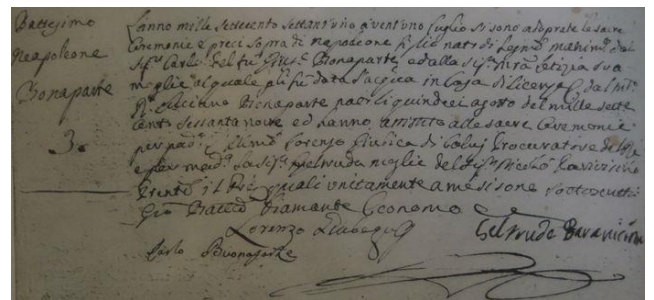 Battesimo
Neapoleone
Bonaparte
3.
L'anno mille settecento settant'uno a vent'uno Luglio si sono adoprate le sacre
Ceremonie e preci sopra di Napoleone figlio nato di Legmo matrimo dal
Sigr Carlo del fu Giuse Bonaparte, e dalla Sigra Mra Letizia sua
moglie al quale gli fu data l'acqua in Casa di licenza dal
Luciano Bonaparte nato li quindeci agosto del mille sette
cento sessanta nove ed hanno assistito alle sacre Ceremonie
per pad Lorenzo Giubica di Calvi Procuratore del Re
e per mada la Sigra Geltruda moglie del Sigr Nicolò Paravicino
Presente il Pre quali unitamente a me si sono sottoscritti
Gio Batta Diamante Economo
Lorenzo Giubega
Geltruda Paravicina
Carlo Buonaparte